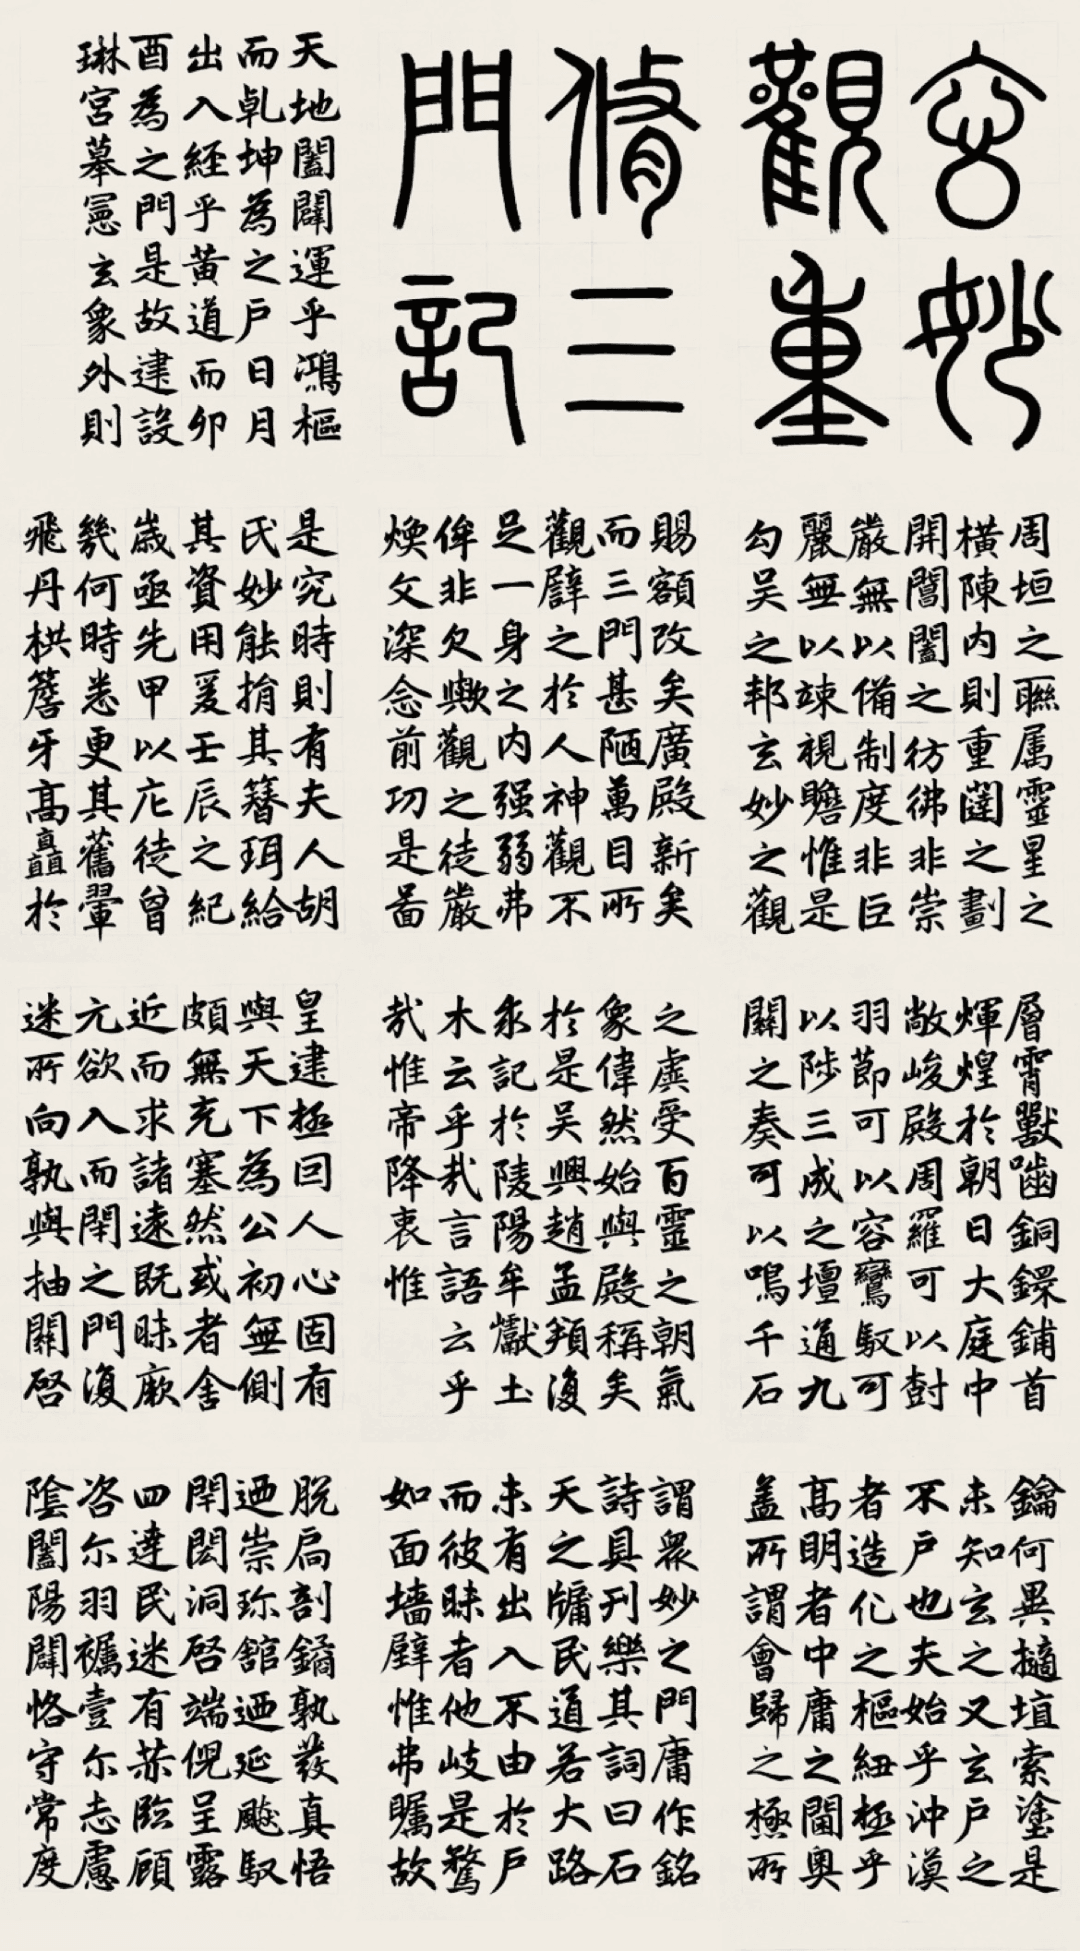 玄妙
觀重
脩三
門記
天地闔闢運乎鴻樞
而乹坤為之戶日月
出入経乎黄道而卯
酉為之門是故建設
琳宮摹憲玄象外則
周垣之聯属靈星之
橫陳内則重闥之劃
開閶闔之彷彿非崇
嚴無以備制度非巨
麗無以竦視瞻惟是
勾吴之邦玄妙之觀
賜額改矣廣殿新矣
而三門甚陋萬目所
觀辟之於人神觀不
足一身之内强弱弗
侔非欠歟觀之徒嚴
煥文深念前功是啚
是究時則有夫人胡
氏妙能捐其簪珥給
其資用爰壬辰之紀
歲亟先甲以庀徒曾
幾何時悉更其舊翬
飛丹栱簷牙髙矗於
層霄獸嚙銅鐶鋪首
煇煌於朝日大庭中
敞峻殿周羅可以尌
羽莭可以容鸞馭可
以陟三成之壇通九
關之奏可以鳴千石
之虡受百靈之朝氣
象偉然始與殿稱矣
於是吴興趙孟頫復
求記於陵陽牟巘土
木云乎㦲言語云乎
㦲惟帝降衷惟
皇建極回人心固有
與天下為公初無側
頗無充塞然或者舍
近而求諸逺既昧厥
元欲入而閇之門復
迷所向孰與抽關啓
鑰何異擿埴索塗是
未知玄之又玄戶之
不戶也夫始乎沖漠
者造化之樞紐極乎
髙明者中庸之閫奥
盖所謂會歸之極所
謂眾妙之門庸作銘
詩具刊樂其詞曰石
天之牖民道若大路
未有出入不由於戶
而彼昧者他岐是騖
如面墻壁惟弗矚故
脱扃剖鐍孰發真悟
迺崇珎舘迺延飈馭
閈閎洞啓端倪呈露
四達民迷有恭臨顧
咨尓羽襹壹尓志慮
隂闔陽闢恪守常度